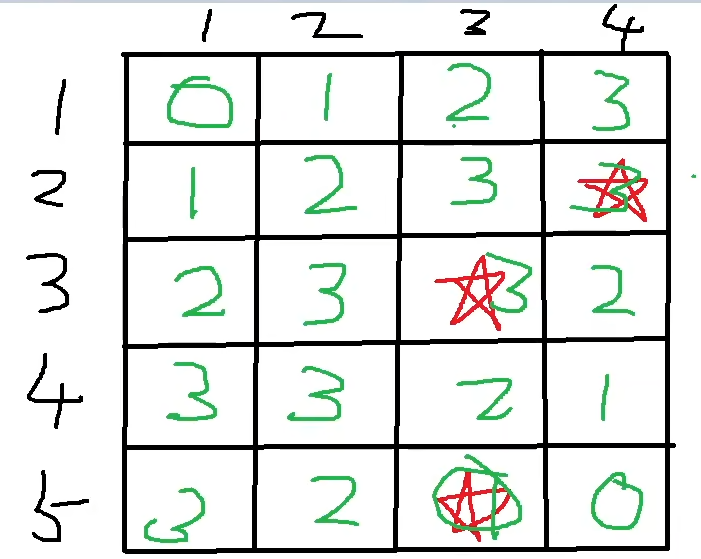 1 2 3 4
1 0 1 2 3
2 1 2 3 3
3 2 3 3 2
4 3 3 2 1
5 3 2 1 0